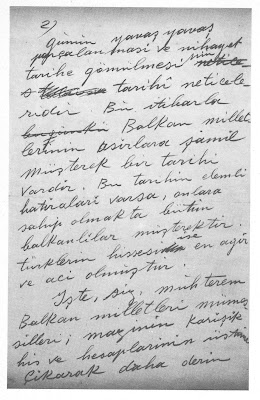 2)
günün yavaş yavaş
parçalanması ve nihayet
tarihe gömülmesinin
tarihî neticele
ridir. Bu itibarla
Balkan millet
lerinin asırlara şamil
müşterek bir tarihi
vardır. Bu tarihin elemli
hatıraları varsa, onlara
sahip olmakta bütün
balkanlılar müşterektir.
türklerin hissesi ise en ağır
ve acı olmuştur.
İşte, siz, muhterem
Balkan milletleri mümes
silleri; mazinin karışık
his ve hesaplarının üstüne
çıkarak daha derin